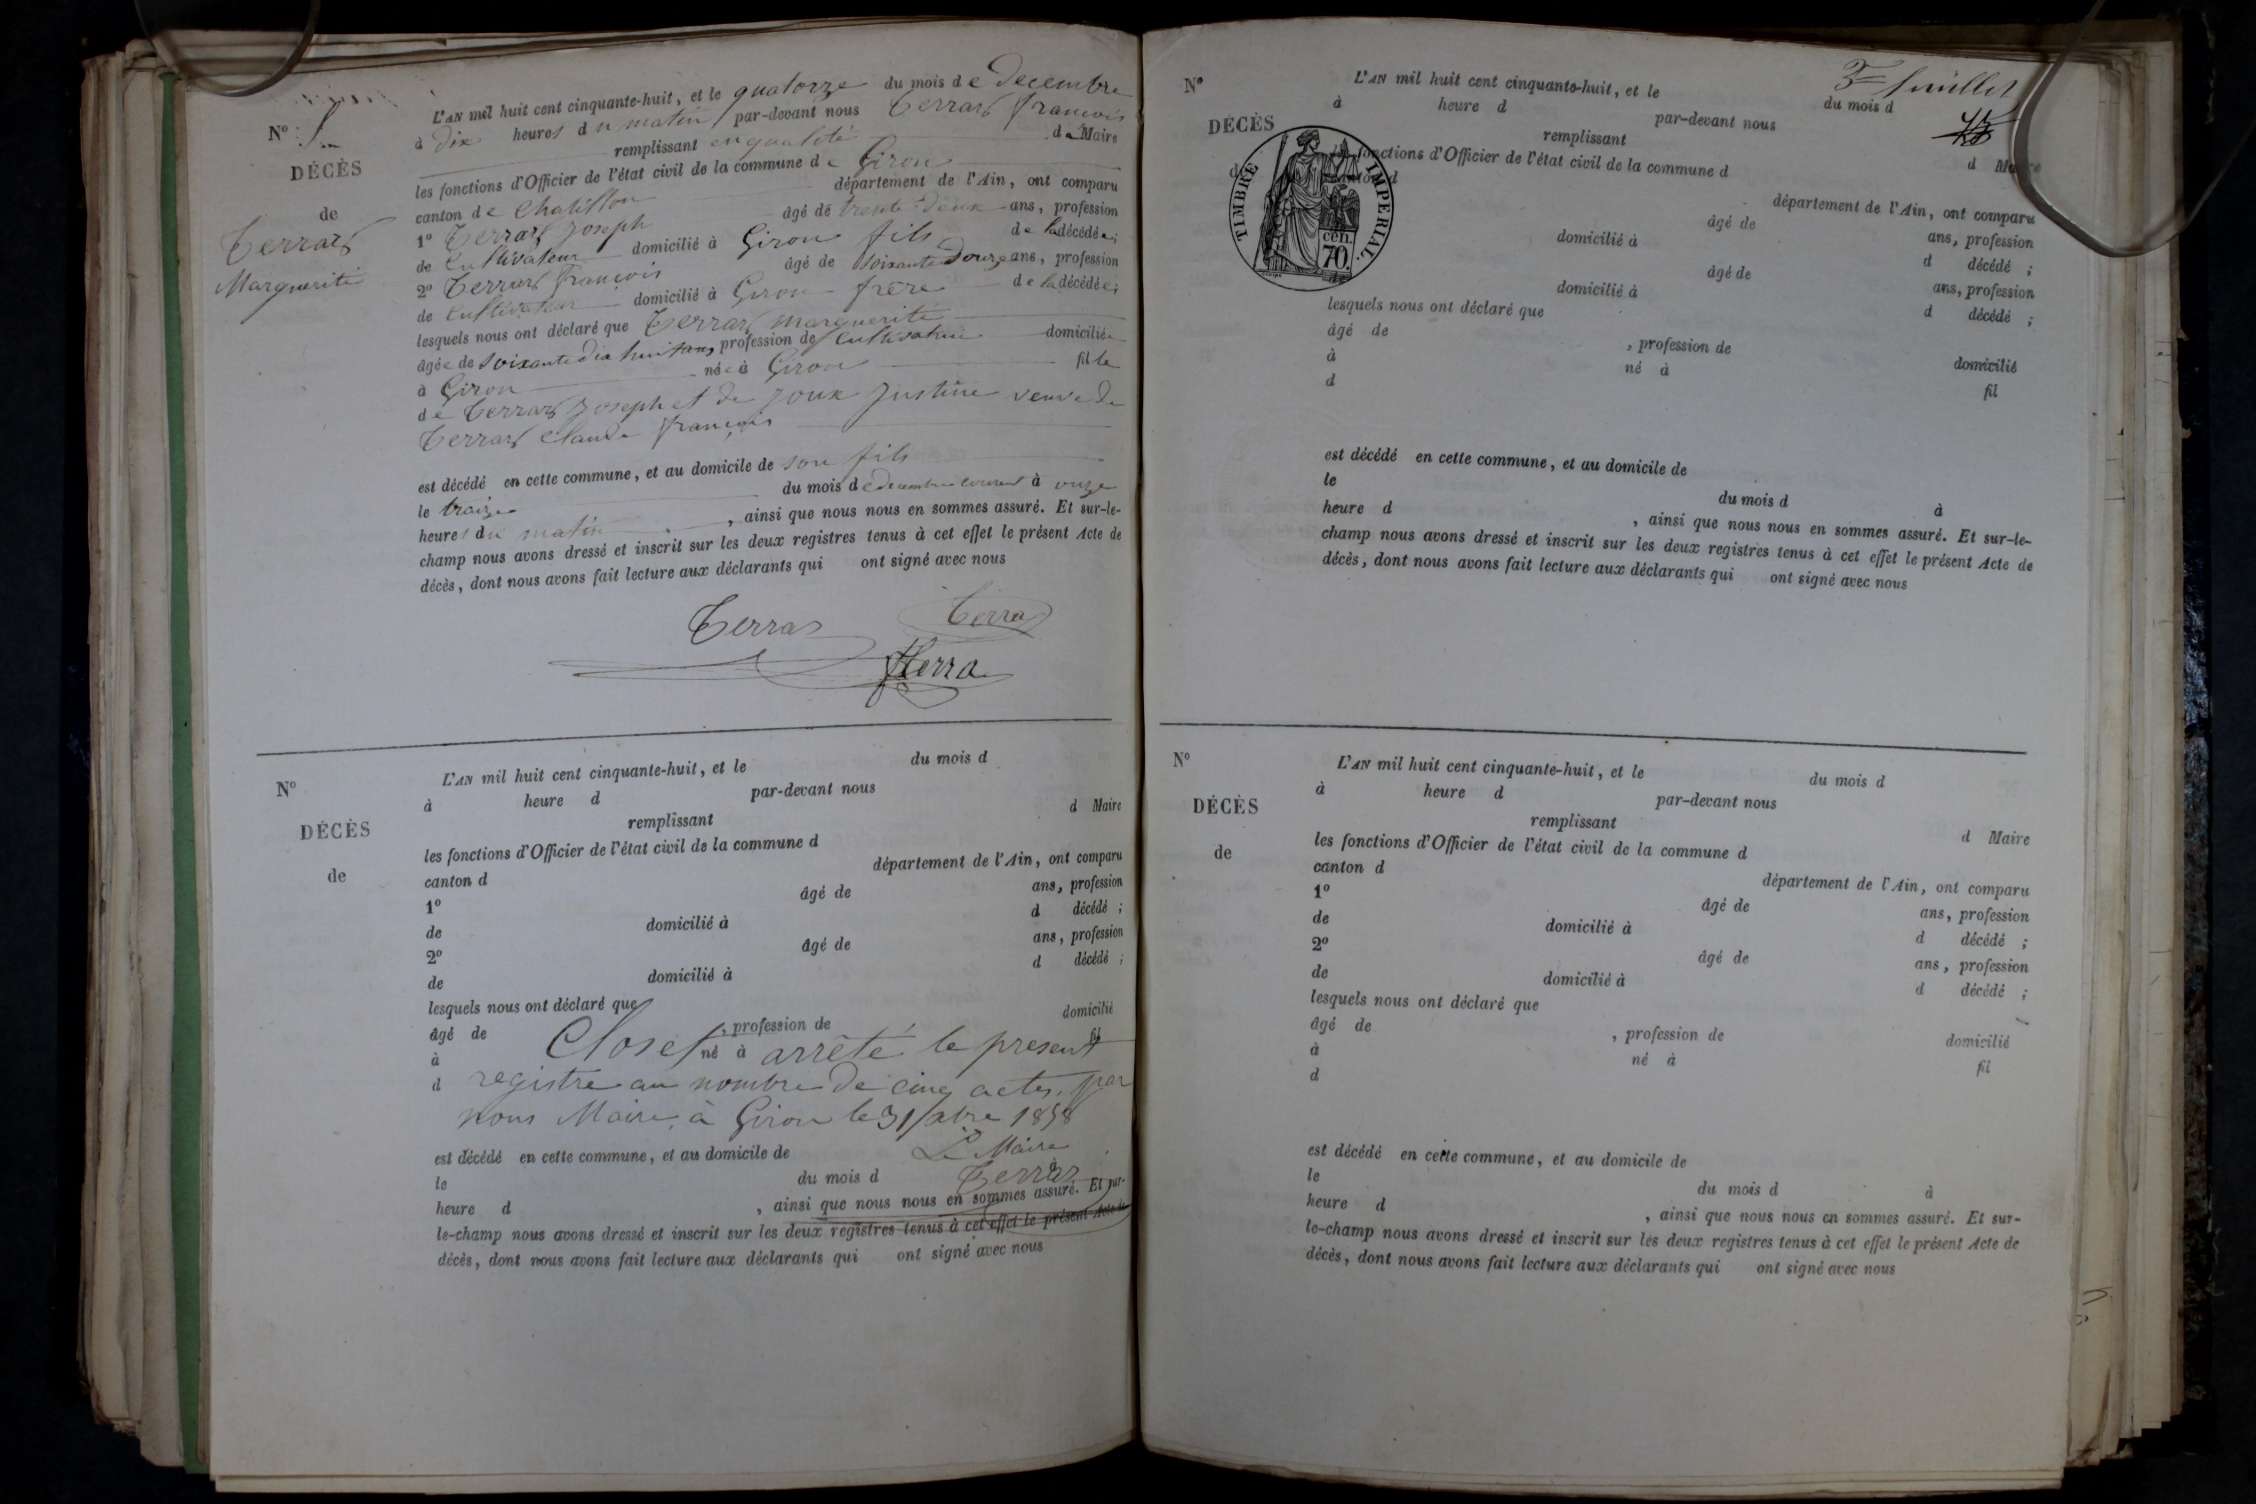 L'AN mil huit cent cinquante-huit, et le quatorze du mois de decembre
à dix heures du matin par-devant nous Terraz françois
remplissant en qualité de Maire
les fonctions d'Officier de l'état civil de la commune de Giron
canton de Chatillon département de l'Ain, ont comparu
1º Terraz Joseph âgé de trente deux ans, profession
de Cultivateur domicilié à Giron fils de la décédée;
2º Terraz françois âgé de soixante douze ans, profession
de Cultivateur domicilié à Giron frère de la décédée;
lesquels nous ont déclaré que Terraz marguerite
âgée de soixante dix huit ans, profession de Cultivatrice domiciliée
à Giron née à Giron fille
de Terraz Joseph et de Joux Justine veuve de
Terraz Claude françois
est décédé en cette commune, et au domicile de son fils
le traize du mois de decembre courant à onze
heures du matin, ainsi que nous nous en sommes assuré. Et sur-le-
champ nous avons dressé et inscrit sur les deux registres tenus à cet effet le présent Acte de
décès, dont nous avons fait lecture aux déclarants qui ont signé avec nous
Nº 5
DÉCÈS
de
Terraz
Marguerite
Terraz Terraz
fterra
Nº
DÉCÈS
de
L'AN mil huit cent cinquante-huit, et le du mois d
à heure d par-devant nous
remplissant d Maire
les fonctions d'Officier de l'état civil de la commune d
canton d département de l'Ain, ont comparu
1º âgé de ans, profession
de domicilié à d décédé ;
2º âgé de ans, profession
de domicilié à d décédé ;
lesquels nous ont déclaré que
âgé de , profession de domicilié
à né à fil
d
Clos et arrêté le present
registre au nombre de cinq actes, par
nous Maire, à Giron le 31 xbre 1858
Le Maire
Terraz
est décédé en cette commune, et au domicile de
le du mois d à
heure d , ainsi que nous nous en sommes assuré. Et sur-
le-champ nous avons dressé et inscrit sur les deux registres tenus à cet effet le présent Acte de
décès, dont nous avons fait lecture aux déclarants qui ont signé avec nous
3e feuillet
Nº
DÉCÈS
d
TIMBRE IMPERIAL.
70. cen.
L'AN mil huit cent cinquante-huit, et le du mois d
à heure d par-devant nous
remplissant d Maire
fonctions d'Officier de l'état civil de la commune d
canton d département de l'Ain, ont comparu
âgé de ans, profession
domicilié à d décédé ;
âgé de ans, profession
de domicilié à d décédé ;
lesquels nous ont déclaré que
âgé de , profession de domicilié
à né à fil
d
est décédé en cette commune, et au domicile de
le du mois d à
heure d , ainsi que nous nous en sommes assuré. Et sur-le-
champ nous avons dressé et inscrit sur les deux registres tenus à cet effet le présent Acte de
décès, dont nous avons fait lecture aux déclarants qui ont signé avec nous
Nº
DÉCÈS
de
L'AN mil huit cent cinquante-huit, et le du mois d
à heure d par-devant nous
remplissant d Maire
les fonctions d'Officier de l'état civil de la commune d
canton d département de l'Ain, ont comparu
1º âgé de ans, profession
de domicilié à d décédé ;
2º âgé de ans, profession
de domicilié à d décédé ;
lesquels nous ont déclaré que
âgé de , profession de domicilié
à né à fil
d
est décédé en cette commune, et au domicile de
le du mois d à
heure d , ainsi que nous nous en sommes assuré. Et sur-
le-champ nous avons dressé et inscrit sur les deux registres tenus à cet effet le présent Acte de
décès, dont nous avons fait lecture aux déclarants qui ont signé avec nous